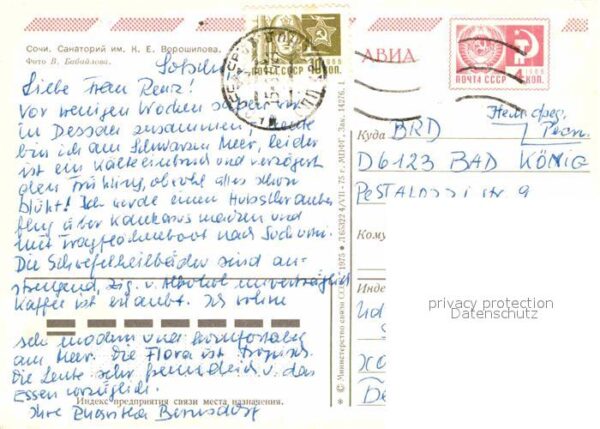 Сочи. Санаторий им. К. Е. Ворошилова.
Фото В. Бабайлова.
Liebe Frau Renz!
Vor wenigen Wochen saßen wir
in Dessau zusammen, heute
bin ich am Schwarzen Meer, leider
ist ein Kälteeinbruch und verzögert
den Frühling, obwohl alles schon
blüht! Ich werde einen Hubschrauber
flug über Kaukasus machen und
mit Tragflächenboot nach Suchumi.
Die Schwefelheilbäder sind an-
strengend, Zig. u. Alkohol unverträglich
Kaffee ist erlaubt. Ich wohne
sehr modern und komfortabel
am Meer. Die Flora ist tropisch.
Die Leute sehr freundlich u. das
Essen vorzüglich.
Ihre Bernsdorf
Индекс предприятия связи места назначения.
ПОЧТА СССР 10 КОП.
* © Министерство связи СССР 1975 * Л 65322 4/VII-75 г. МПФГ. Зак. 14276. 1
АВИА
ПОЧТА СССР 4 КОП.
Куда BRD
D6123 BAD KÖNIG
PESTALOZZI str 9
Кому
Индекс
privacy protection
Datenschutz